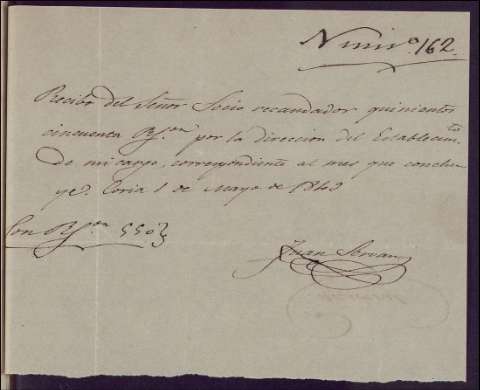 Num.º 162.
Recibí del Señor Socio recaudador quinientos
cincuenta Rs.vn por la direccion del Establecim.to
de mi cargo, correspondiente al mes que conclu-
ye. Coria 1 de Mayo de 1843
Son Rs.vn 550
Juan Servan